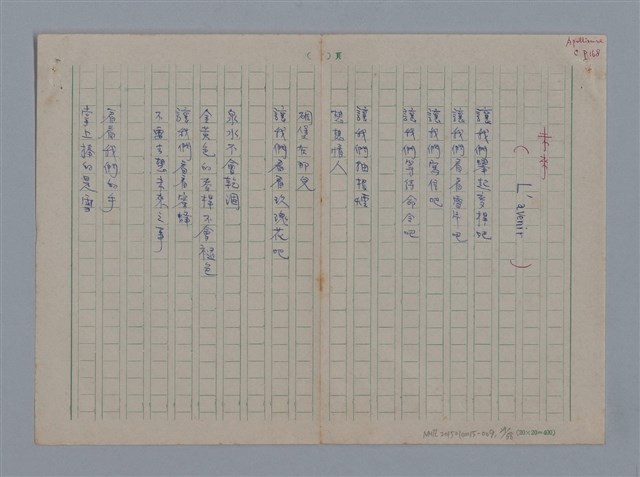 Apollinaire
未來
( L'avenir )
讓我們舉起麥桿吧
讓我們看看雪片吧
讓我們寫信吧
讓我們等待命令吧
讓我們抽撥煙
想想情人
砲隻在那兒
讓我們看看玫瑰花吧
泉水不會乾涸
金黃色的麥桿不會褪色
讓我們看看蜜蜂
不要去想未來之事
看看我們的手
掌上捧的是雪
( )頁
(20×20=400)